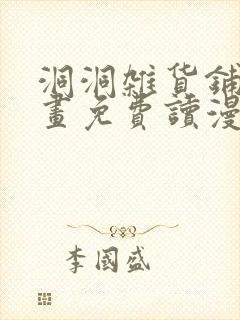 洞洞雜貨鋪
畫免費讀漫
李國盛